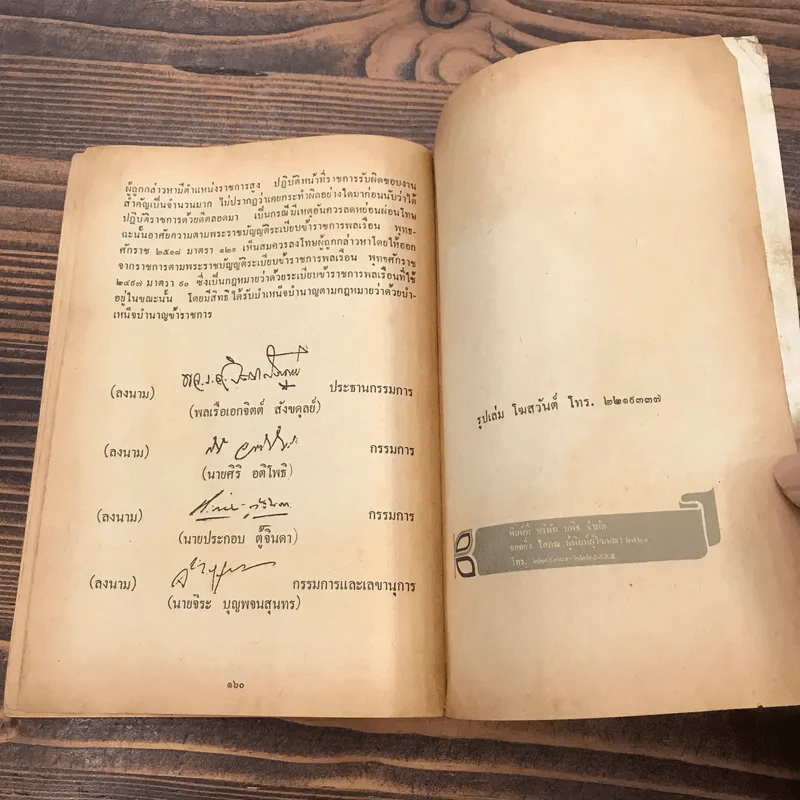 ผู้ถูกกล่าวหามีตำแหน่งราชการสูง ปฏิบัติหน้าที่ราชการรับผิดชอบงาน
สำคัญเป็นจำนวนมาก ไม่ปรากฏว่าเคยกระทำผิดอย่างใดมาก่อนนับว่าได้
ปฏิบัติราชการด้วยดีตลอดมา เป็นกรณีมีเหตุอันควรลดหย่อนผ่อนโทษ
ฉะนั้นอาศัยความตามพระราชบัญญัติระเบียบข้าราชการพลเรือน พุทธ-
ศักราช ๒๕๑๘ มาตรา ๑๒๑ เห็นสมควรลงโทษผู้ถูกกล่าวหาโดยให้ออก
จากราชการตามพระราชบัญญัติระเบียบข้าราชการพลเรือน พุทธศักราช
๒๔๙๗ มาตรา ๙๐ ซึ่งเป็นกฎหมายว่าด้วยระเบียบข้าราชการพลเรือนที่ใช้
อยู่ในขณะนั้น โดยมีสิทธิได้รับบำเหน็จบำนาญตามกฎหมายว่าด้วยบำ-
เหน็จบำนาญข้าราชการ
(ลงนาม) ประธานกรรมการ
(พลเรือเอกจิตต์ สังขดุลย์)
(ลงนาม) กรรมการ
(นายศิริ อติโพธิ)
(ลงนาม) กรรมการ
(นายประกอบ ตู้จินดา)
(ลงนาม) กรรมการและเลขานุการ
(นายจิระ บุญพจนสุนทร)
๑๖๐
รูปเล่ม โฆสวันต์ โทร. ๒๒๑๙๓๓๗
พิมพ์ที่ บริษัท จำกัด
โสภณ ผู้พิมพ์ผู้โฆษณา ๒๕๒๑
โทร.